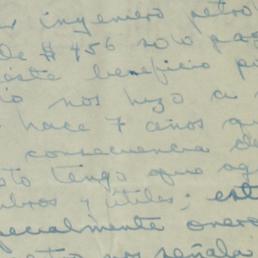 ingeniero petro
de $ 456 solo pag
este beneficio p
nos hizo a
hace 7 años qu
consecuencia de
to tengo que ag
bros y útiles; est
pecialmente onero
nos señala